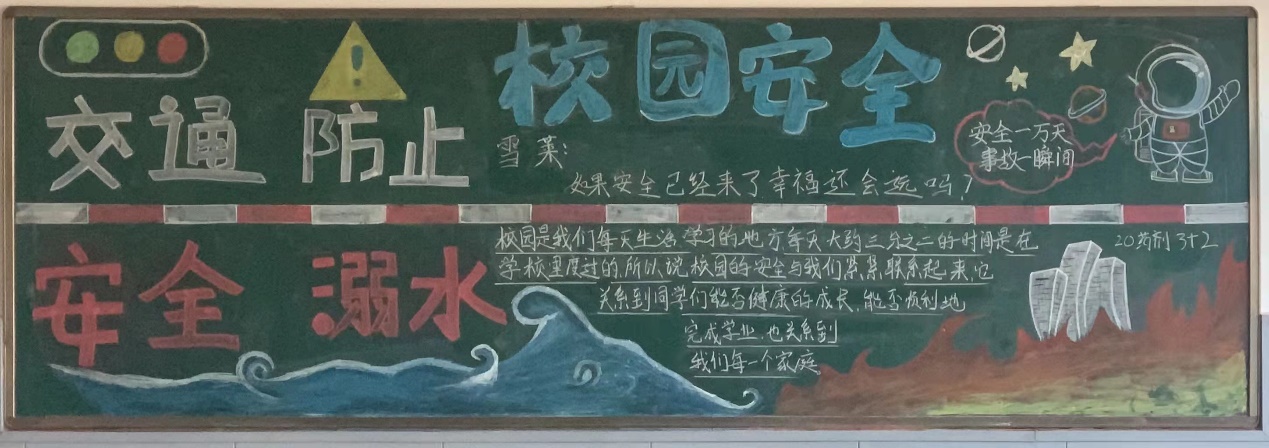 校园安全
交通 防止
安全 溺水
雪莱:
如果安全已经来了幸福还会远吗?
安全一万天
事故一瞬间
校园是我们每天生活、学习的地方每天大约三分之二的时间是在
学校里度过的,所以说校园的安全与我们紧紧联系起来,它
关系到同学们能否健康的成长,能否顺利地
完成学业,也关系到
我们每一个家庭
20药剂3+2